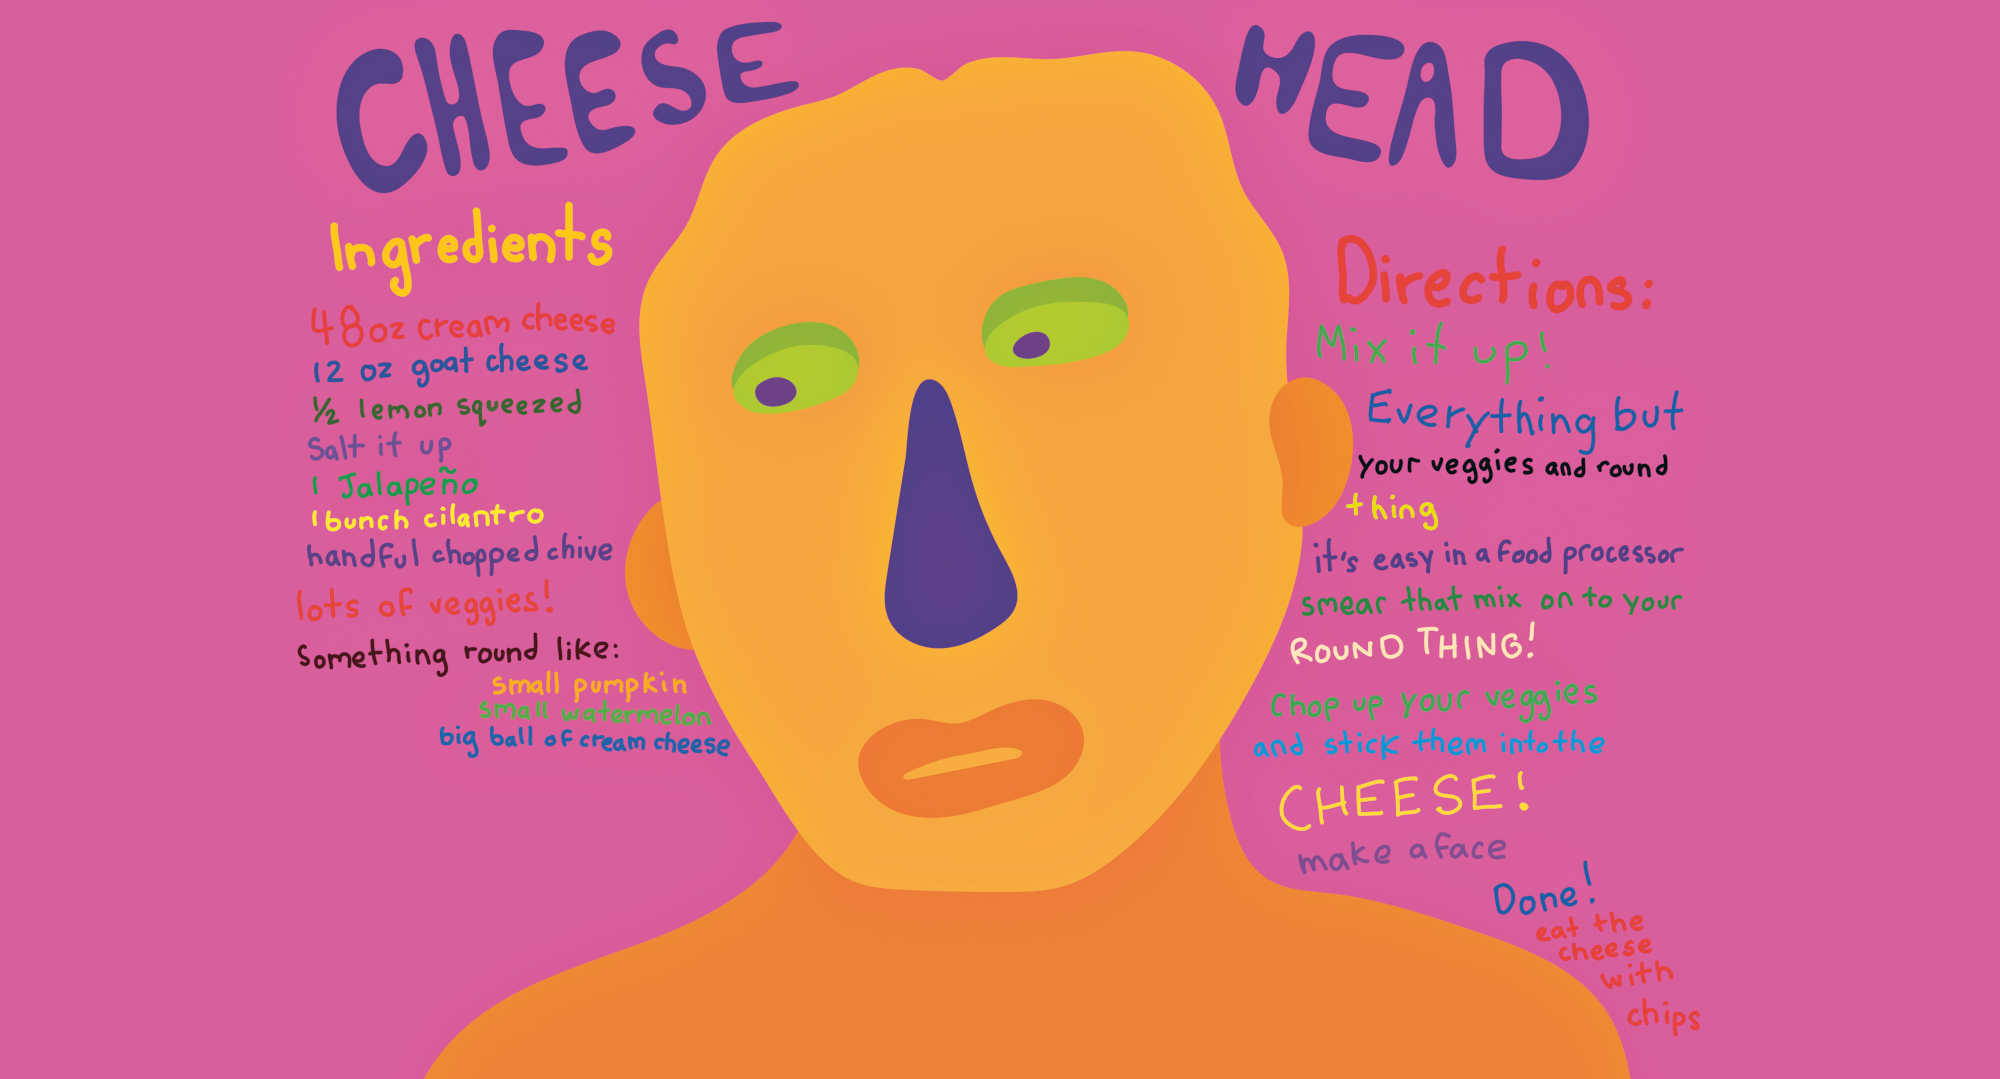 CHEESE HEAD
Ingredients
48 oz cream cheese
12 oz goat cheese
½ lemon squeezed
Salt it up
1 Jalapeño
1 bunch cilantro
handful chopped chive
lots of veggies!
Something round like:
small pumpkin
small watermelon
big ball of cream cheese
Directions:
Mix it up!
Everything but
your veggies and round
thing
it's easy in a food processor
smear that mix on to your
ROUND THING!
Chop up your veggies
and stick them into the
CHEESE!
make a face
Done!
eat the
cheese
with
chips